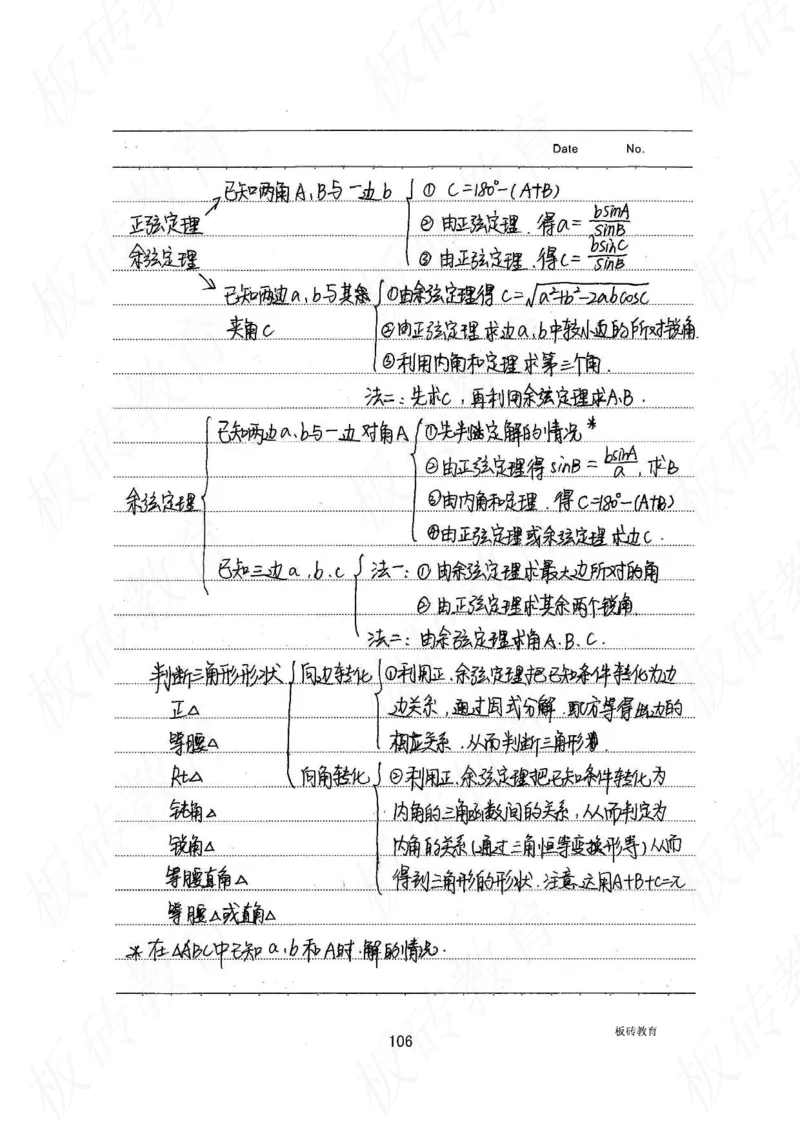 Date No.
已知两角A、B与一边b ① C=180°-(A+B)
正弦定理 ② 由正弦定理,得a=bsinA/sinB
余弦定理 ③ 由正弦定理,得c=bsinC/sinB
已知两边a、b与其余 ①由余弦定理得 c=√a²+b²-2abcosc
夹角C ②由正弦定理求边a、b中较小边的所对锐角
③利用内角和定理求第三个角.
法二:先求c,再利用余弦定理求A、B.
已知两边a、b与一边对角A ①先判断定解的情况*
②由正弦定理得sinB=bsinA/a,求B
余弦定理 ③由内角和定理,得C=180°-(A+B)
④由正弦定理或余弦定理求边c.
已知三边a、b、c 法一:①由余弦定理求最大边所对的角
②由正弦定理求其余两个锐角
法二:由余弦定理求角A、B、C.
判断三角形形状 向边转化 ①利用正、余弦定理把已知条件转化为边
正△ 边关系,通过因式分解、配方等得出边的
等腰△ 相应关系,从而判断三角形.
Rt△ 向角转化 ②利用正、余弦定理把已知条件转化为
钝角△ 内角的三角函数间的关系,从而判定为
锐角△ 内角的关系(通过三角恒等变换形等)从而
等腰直角△ 得到三角形的形状.注意运用A+B+C=π
等腰△或直角△
*在△ABC中已知a、b和A时.解的情况.
106
板砖教育